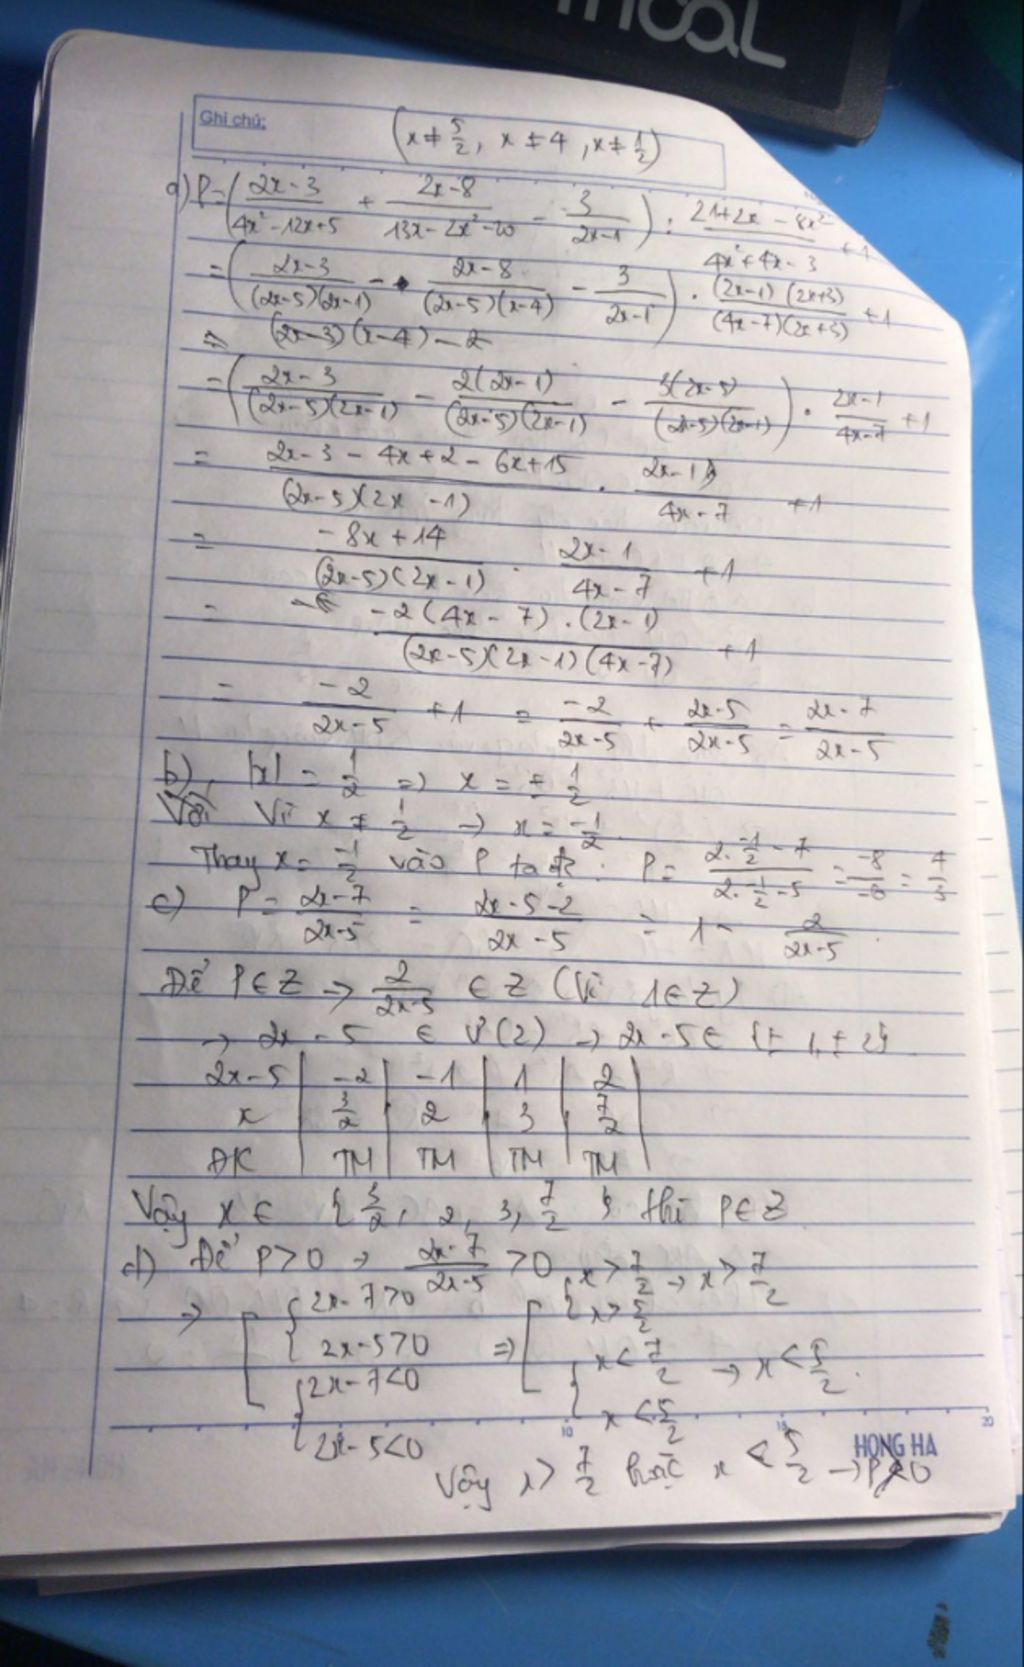 Ghi chú: (x ≠ 5/2, x ≠ 4, x ≠ 1/2)
a) P = ((2x-3)/(4x²-12x+5) + (2x-8)/(13x-2x²-20) - 3/(2x-1)) : (21+2x-8x²)/(4x²+4x-3) + 1
= ((2x-3)/((2x-5)(2x-1)) - (2x-8)/((2x-5)(x-4)) - 3/(2x-1)) · ((2x-1)(2x+3))/((4x-7)(2x+3)) + 1
= (2x-3)(x-4) - 2
= ((2x-3)/((2x-5)(2x-1)) - 2(2x-1)/((2x-5)(2x-1)) - 3(2x-5)/((2x-5)(2x-1))) · (2x-1)/(4x-7) + 1
= (2x-3-4x+2-6x+15)/((2x-5)(2x-1)) · (2x-1)/(4x-7) + 1
= (-8x+14)/((2x-5)(2x-1)) · (2x-1)/(4x-7) + 1
= (-2(4x-7).(2x-1))/((2x-5)(2x-1)(4x-7)) + 1
= -2/(2x-5) + 1 = -2/(2x-5) + (2x-5)/(2x-5) = (2x-7)/(2x-5)
b) |x| = 1/2 => x = ± 1/2
Với Vì x ≠ 1/2 → x = -1/2
Thay x = -1/2 vào P ta đc: P = (2.-1/2 - 7)/(2.-1/2 - 5) = -8/-6 = 4/3
c) P = (2x-7)/(2x-5) = (2x-5-2)/(2x-5) = 1 - 2/(2x-5)
Để P ∈ Z → 2/(2x-5) ∈ Z (Vì 1 ∈ Z)
→ 2x-5 ∈ Ư(2) → 2x-5 ∈ {± 1, ± 2}
2x-5 | -2 | -1 | 1 | 2
x | 3/2 | 2 | 3 | 7/2
ĐK | TM | TM | TM | TM
Vậy x ∈ {3/2, 2, 3, 7/2} thì P ∈ Z
d) Để P > 0 → (2x-7)/(2x-5) > 0
→ [ { 2x-7>0 => [ { x > 7/2 → x > 7/2
2x-5>0 x > 5/2
{ 2x-7<0 { x < 7/2 → x < 5/2.
2x-5<0 x < 5/2
10 15 20
HONG HA
Vậy x > 7/2 hoặc x < 5/2 → P > 0